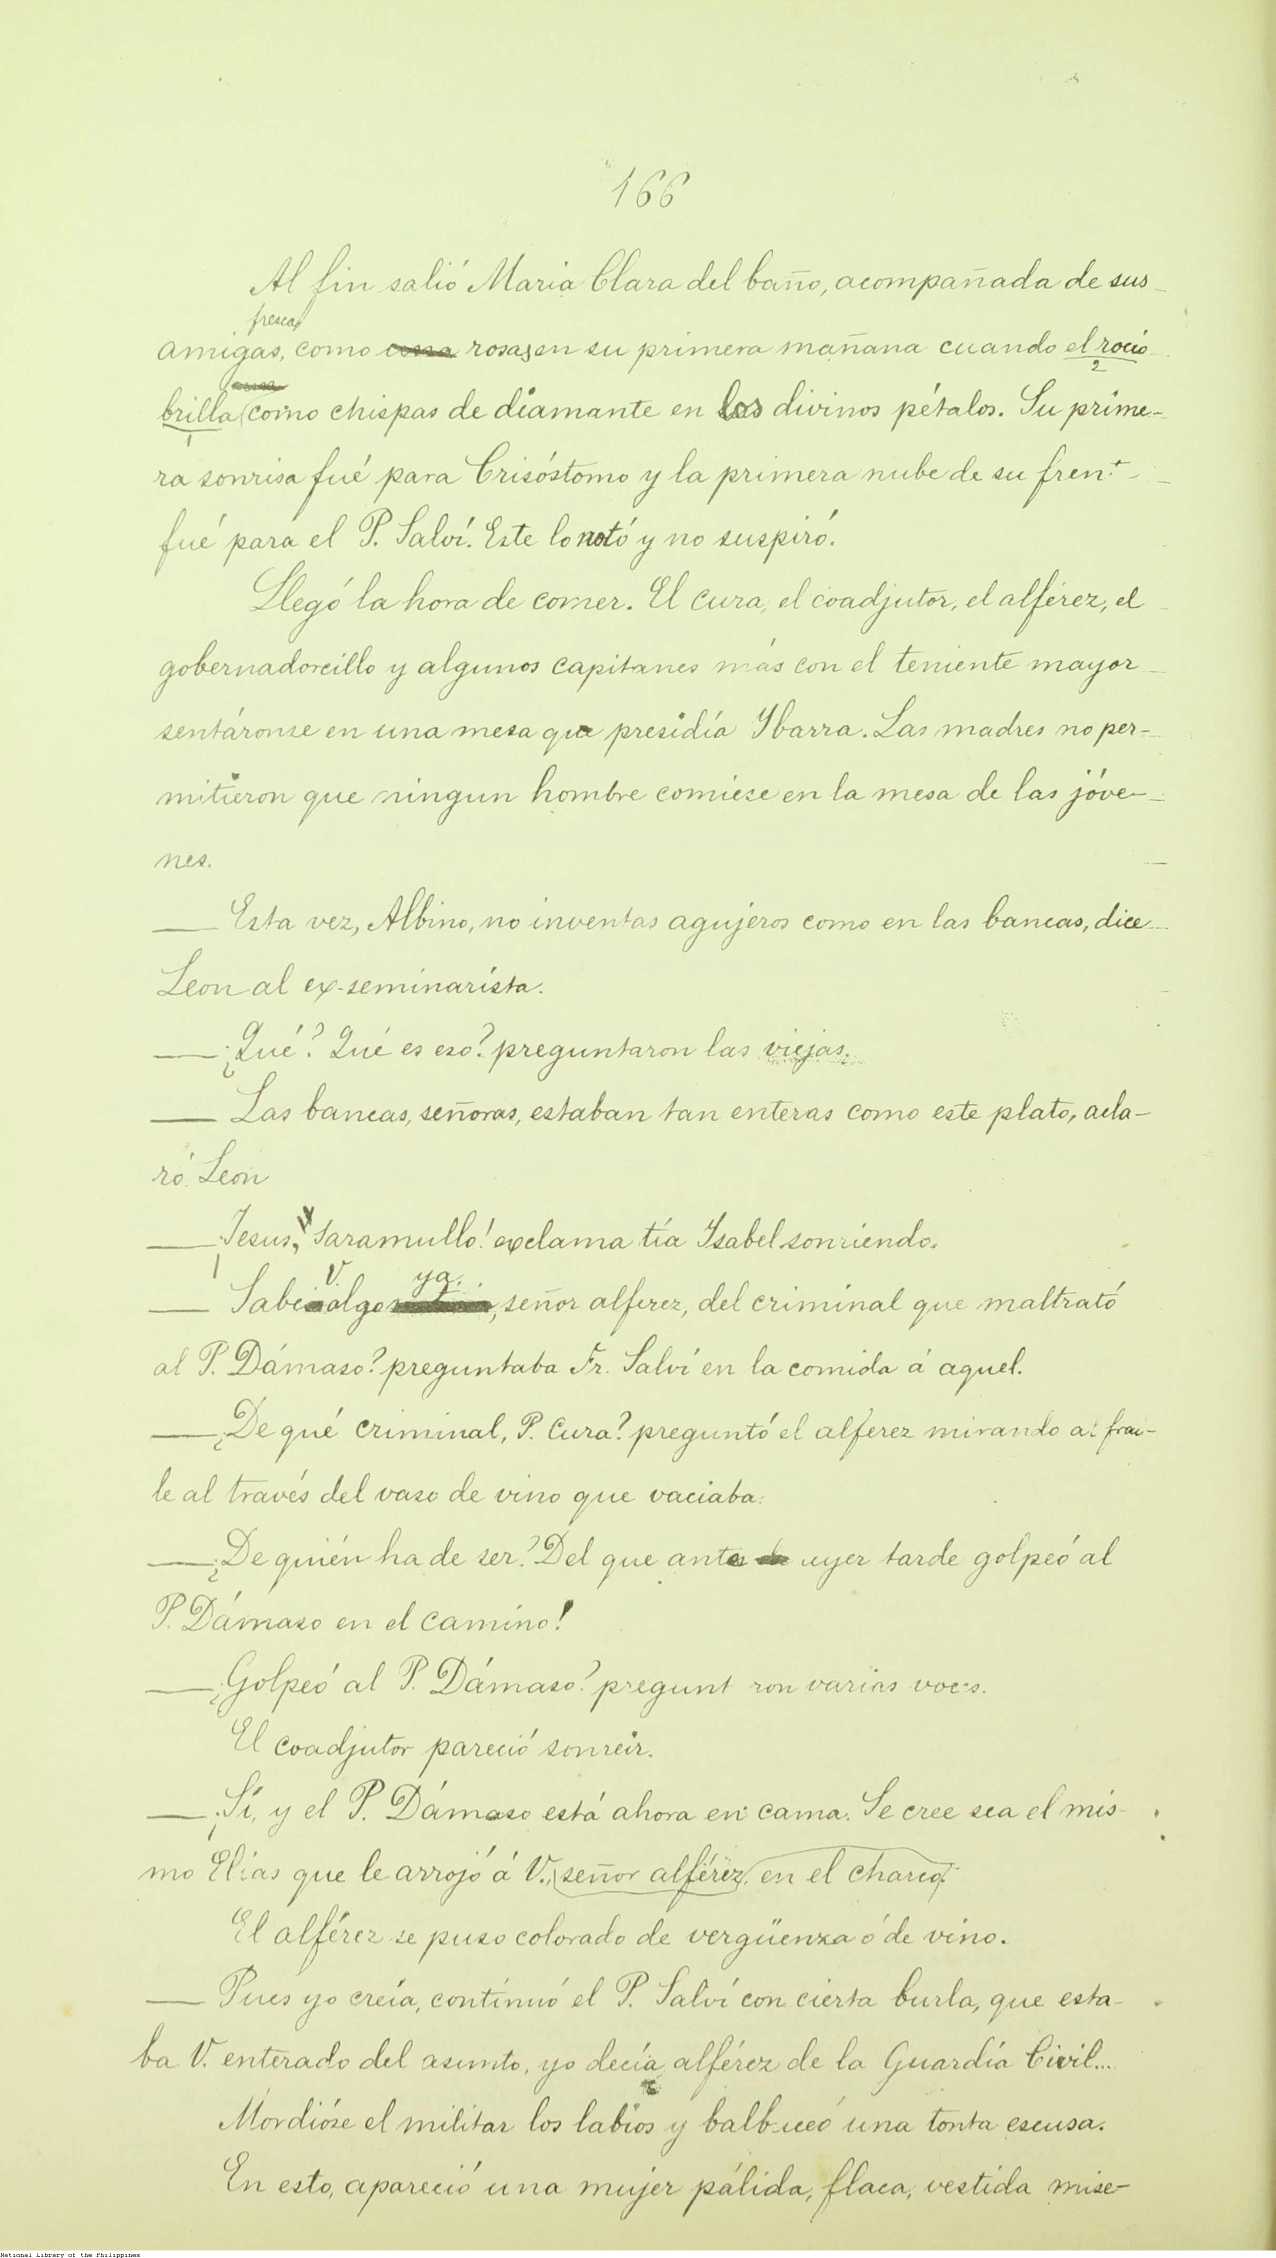 166
Al fin salió Maria Clara del baño, acompañada de sus
fresca
amigas, como rosa, en su primera mañana cuando el rocío
2
brilla como chispas de diamante en los divinos pétalos. Su prime-
1
ra sonrisa fué para Crisóstomo y la primera nube de su frent
fué para el P. Salví. Este lo notó y no suspiró.
Llegó la hora de comer. El cura, el coadjutor, el alférez, el
gobernadorcillo y algunos capitanes más con el teniente mayor
sentáronse en una mesa que presidía Ybarra. Las madres no per-
mitieron que ningun hombre comiese en la mesa de las jóve-
nes.
— Esta vez, Albino, no inventas agujeros como en las bancas, dice
Leon al ex-seminarista.
— ¿Qué? Qué es eso? preguntaron las viejas.
— Las bancas, señoras, estaban tan enteras como este plato, acla-
ró Leon
— ¡Jesus, saramullo! exclama tía Ysabel sonriendo.
V. ya
— Sabe algo, señor alferez, del criminal que maltrató
al P. Dámaso? preguntaba Fr. Salví en la comida á aquel.
— ¿De qué criminal, P. Cura? preguntó el alferez mirando al frai-
le al través del vaso de vino que vaciaba.
— ¿De quién ha de ser? Del que antes de ayer tarde golpeó al
P. Dámaso en el camino!
— ¿Golpeó al P. Dámaso? pregunt ron varias voces.
El coadjutor pareció sonreir.
— ¡Sí, y el P. Dámaso está ahora en cama. Se cree sea el mis-
mo Elías que le arrojó á V., señor alférez, en el charco.
El alférez se puso colorado de vergüenza ó de vino.
— Pues yo creía, continuó el P. Salví con cierta burla, que esta-
ba V. enterado del asunto, yo decía, alférez de la Guardia Civil...
Mordióse el militar los labios y balbuceó una tonta escusa.
En esto, apareció una mujer pálida, flaca, vestida mise-
National Library of the Philippines